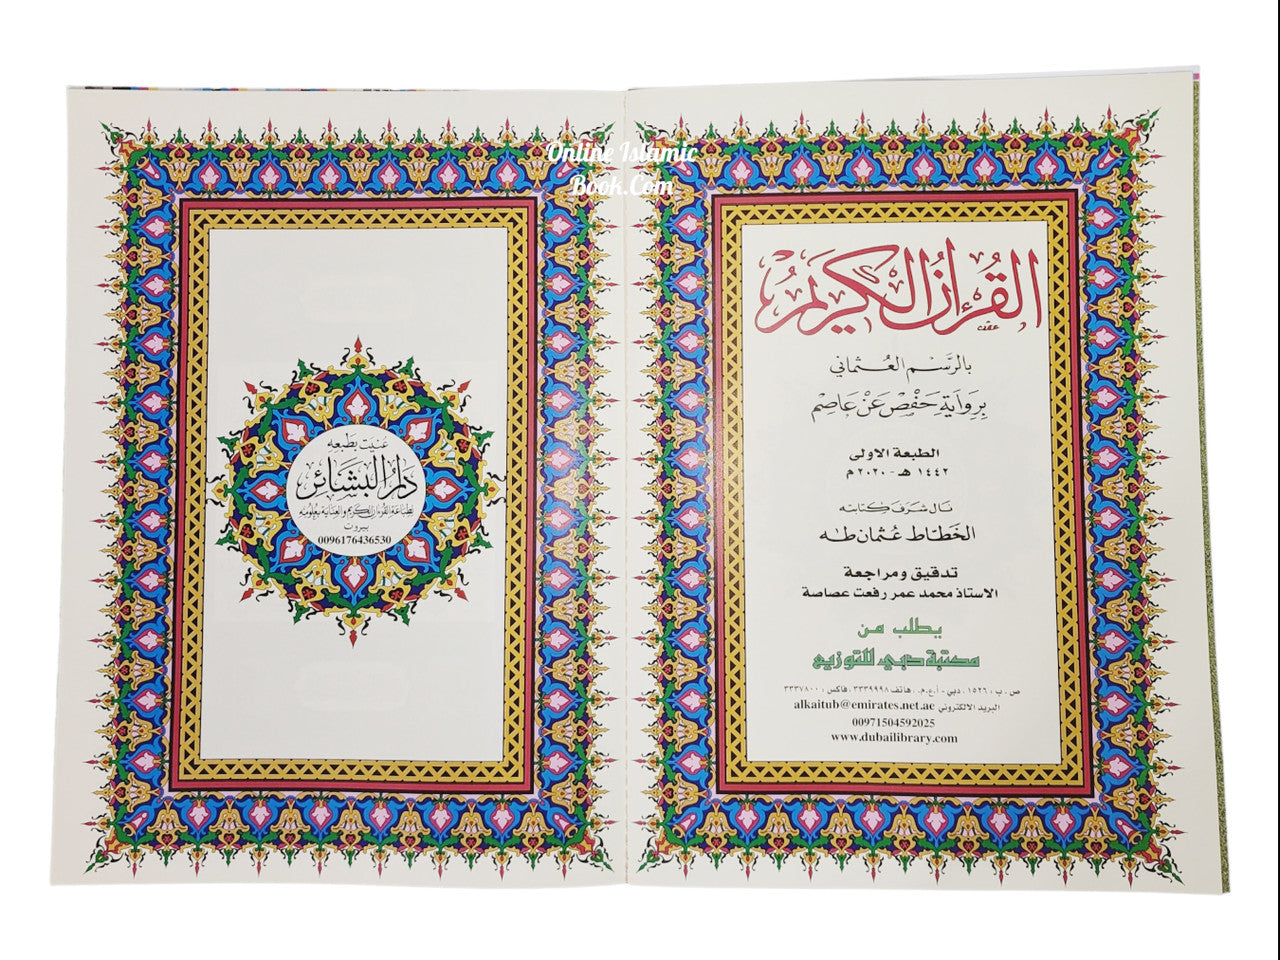 Online Islamic
Book.Com
القرءان الكريم
بالرَّسْم العُثماني
بِرِوَايَةِ حَفْصْ عَنْ عَاصِمْ
الطبعة الاولى
١٤٤٢ هـ - ٢٠٢٠ م
نال شرف كتابته
الخَطّاط عُثمان طه
تدقيق ومراجعة
الاستاذ محمد عمر رفعت عصاصة
يطلب من
مكتبة دبي للتوزيع
ص . ب : ١٥٢٦ ، دبي - أ.ع.م . هاتف ٣٣٣٩٩٩٨ ، فاكس : ٣٣٣٧٨٠٠
البريد الالكتروني alkaitub@emirates.net.ae
00971504592025
www.dubailibrary.com
عنيت بطبعه
دار البشائر
لطباعة القرءان الكريم والعناية بعلومه
بيروت
0096176436530